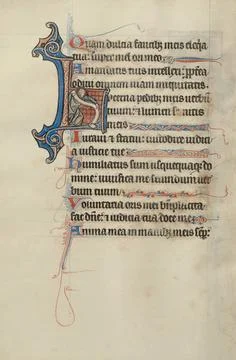 Quam dulcia faucibus meis eloquia
tua: super mel ori meo.
A mandatis tuis intellexi: propterea
odivi omnem viam iniquitatis.
Lucerna pedibus meis verbum
tuum: & lumen semitis
meis
Iuravi & statui: custodire iudici
a iusticie tue
Humiliatus sum usquequaqz do
mine: vivifica me secundum ver
bum tuum.
Voluntaria oris mei bnplacita
fac dne: & iudicia tua doce me
Anima mea in manibz meis semp: